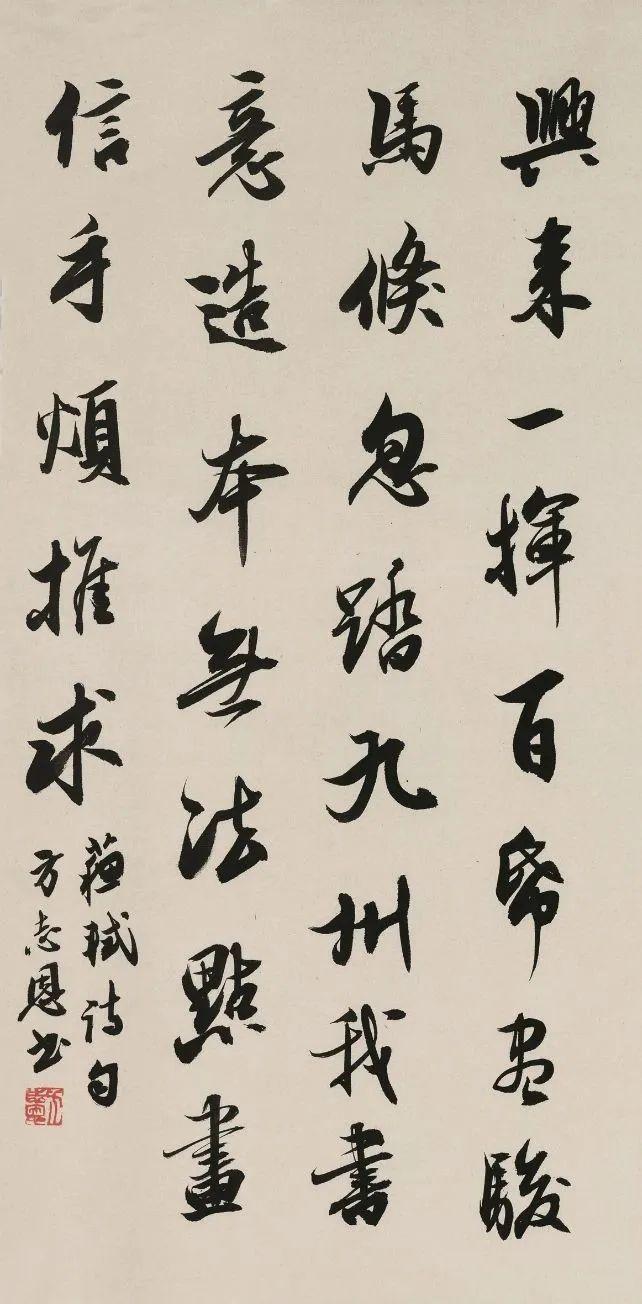 興來一揮百紙盡駿
馬倏忽踏九州我書
意造本無法點畫
信手煩推求
蘇軾詩句
方志恩书